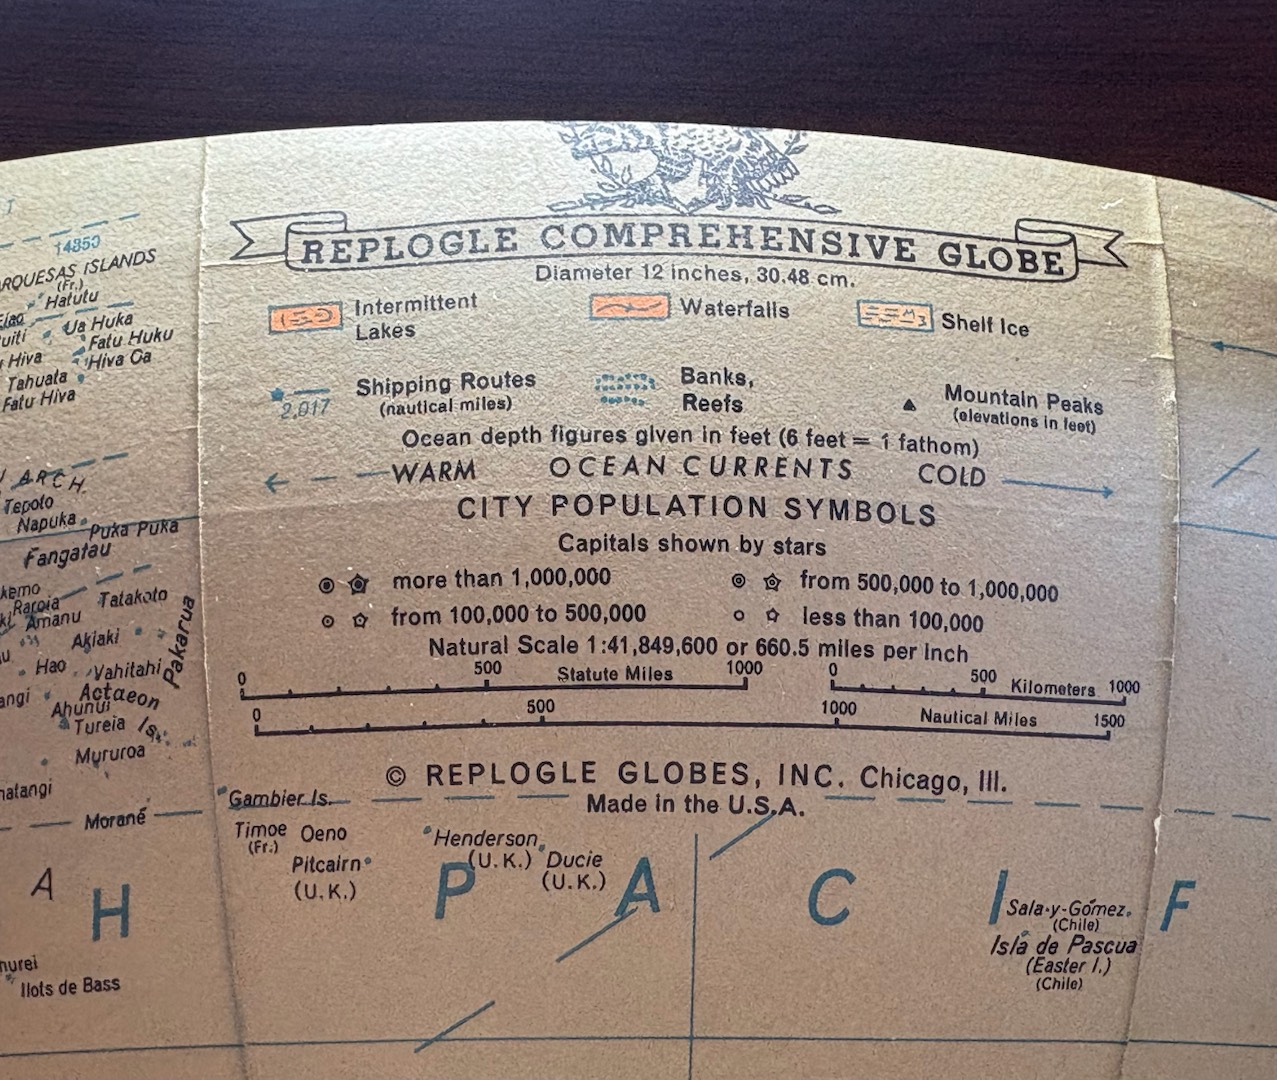 REPLOGLE COMPREHENSIVE GLOBE
Diameter 12 inches, 30.48 cm.
Intermittent Lakes
Waterfalls
Shelf Ice
2,017
Shipping Routes
(nautical miles)
Banks,
Reefs
Mountain Peaks
(elevations in feet)
Ocean depth figures given in feet (6 feet = 1 fathom)
WARM OCEAN CURRENTS COLD
CITY POPULATION SYMBOLS
Capitals shown by stars
more than 1,000,000
from 500,000 to 1,000,000
from 100,000 to 500,000
less than 100,000
Natural Scale 1:41,849,600 or 660.5 miles per Inch
0 500 Statute Miles 1000
0 500 Kilometers 1000
0 500 1000 Nautical Miles 1500
© REPLOGLE GLOBES, INC. Chicago, Ill.
Made in the U.S.A.
14850
ISLANDS
(Fr.)
Hatutu
Ua Huka
Fatu Huku
Hiva
Hiva Oa
Tahuata
Fatu Hiva
ARCH.
Tepoto
Napuka
Puka Puka
Fangatau
Raroia
Tatakoto
Amanu
Akiaki
Pakarua
Hao
Vahitahi
Actaeon
Is.
Ahunui
Tureia
Mururoa
Morané
Gambier Is.
Timoe
(Fr.)
Oeno
Pitcairn
(U.K.)
Henderson
(U.K.)
Ducie
(U.K.)
A H
P A C I F
Sala-y-Gómez
(Chile)
Isla de Pascua
(Easter I.)
(Chile)
Ilots de Bass